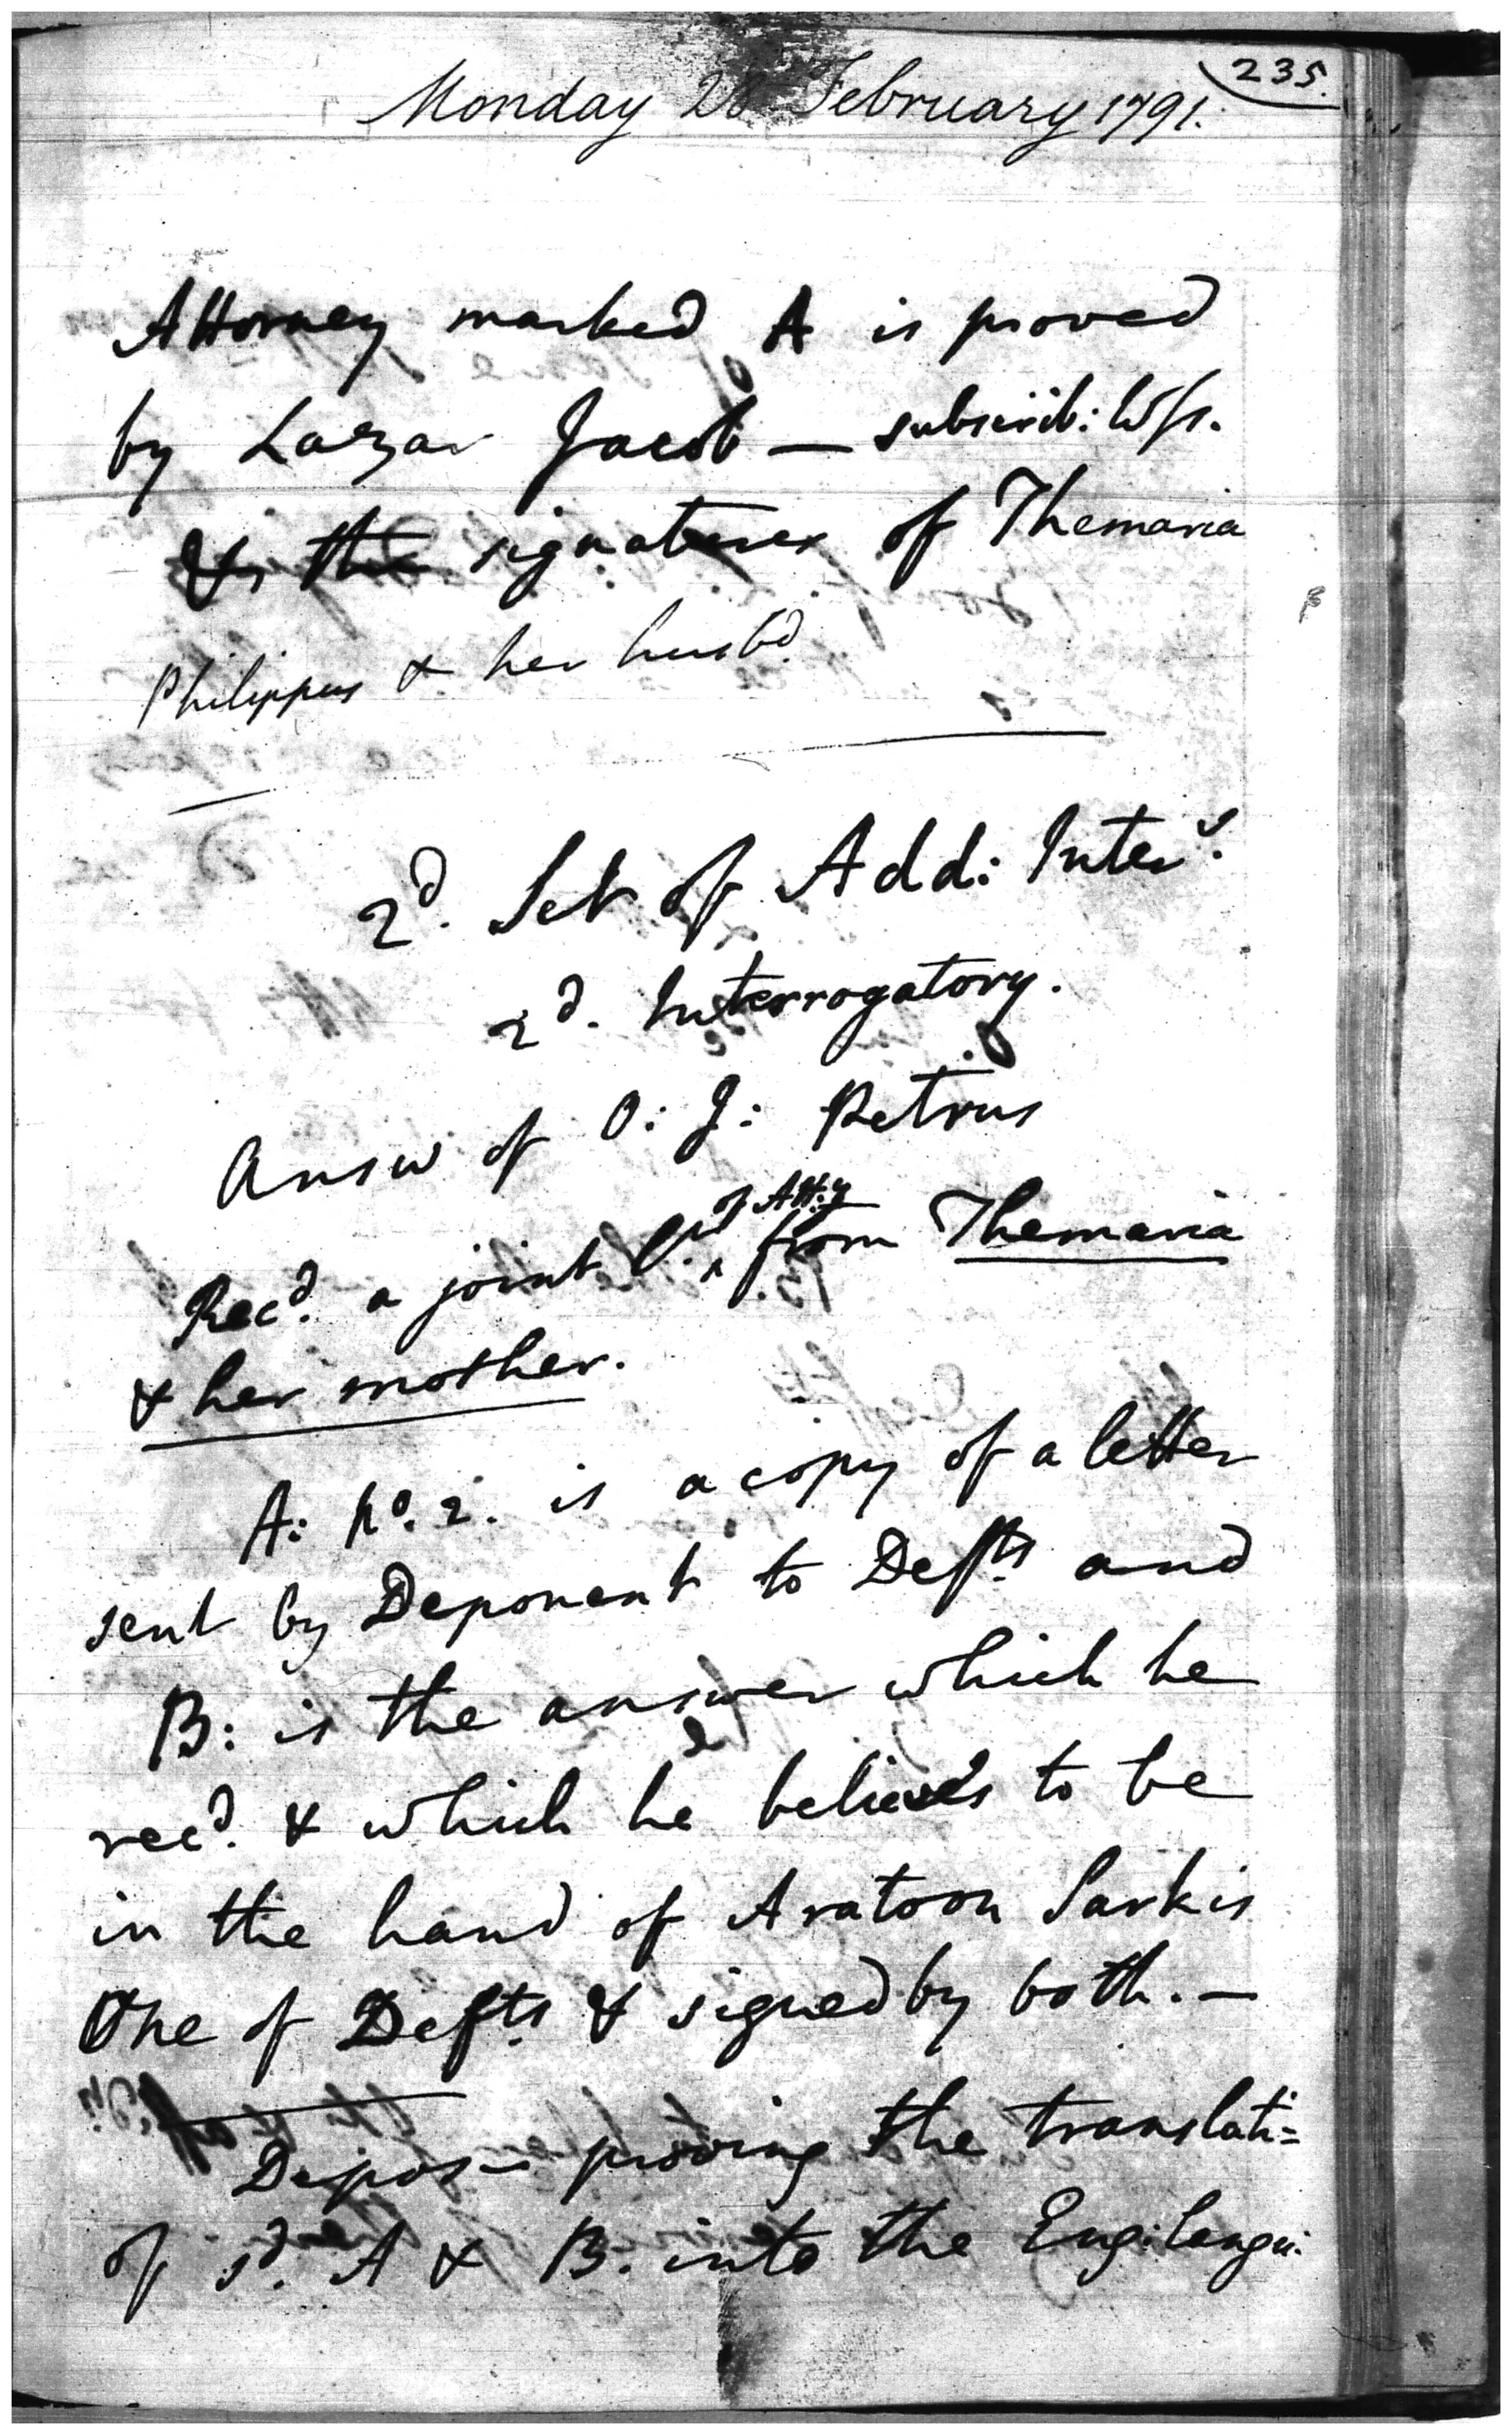 235.
Monday 28 February 1791.
Attorney marked A is proved
by Lazar Jacob — subscrib: Wss.
& the signatures of Themaria
Philippus & her husbd.
2d. Set of Add: Inters.
2d. Interrogatory.
Answ of O: J: Petrus
Recd. a joint Pr. of Att:y from Themaria
& her mother.
A: No. 2. is a copy of a letter
sent by Deponent to Defts and
B: is the answer which he
recd. & which he believes to be
in the hand of Aratoon Sarkis
One of Defts & signed by both. —
Depos— proving the translati=
of sd. A & B. into the Eng: langu: